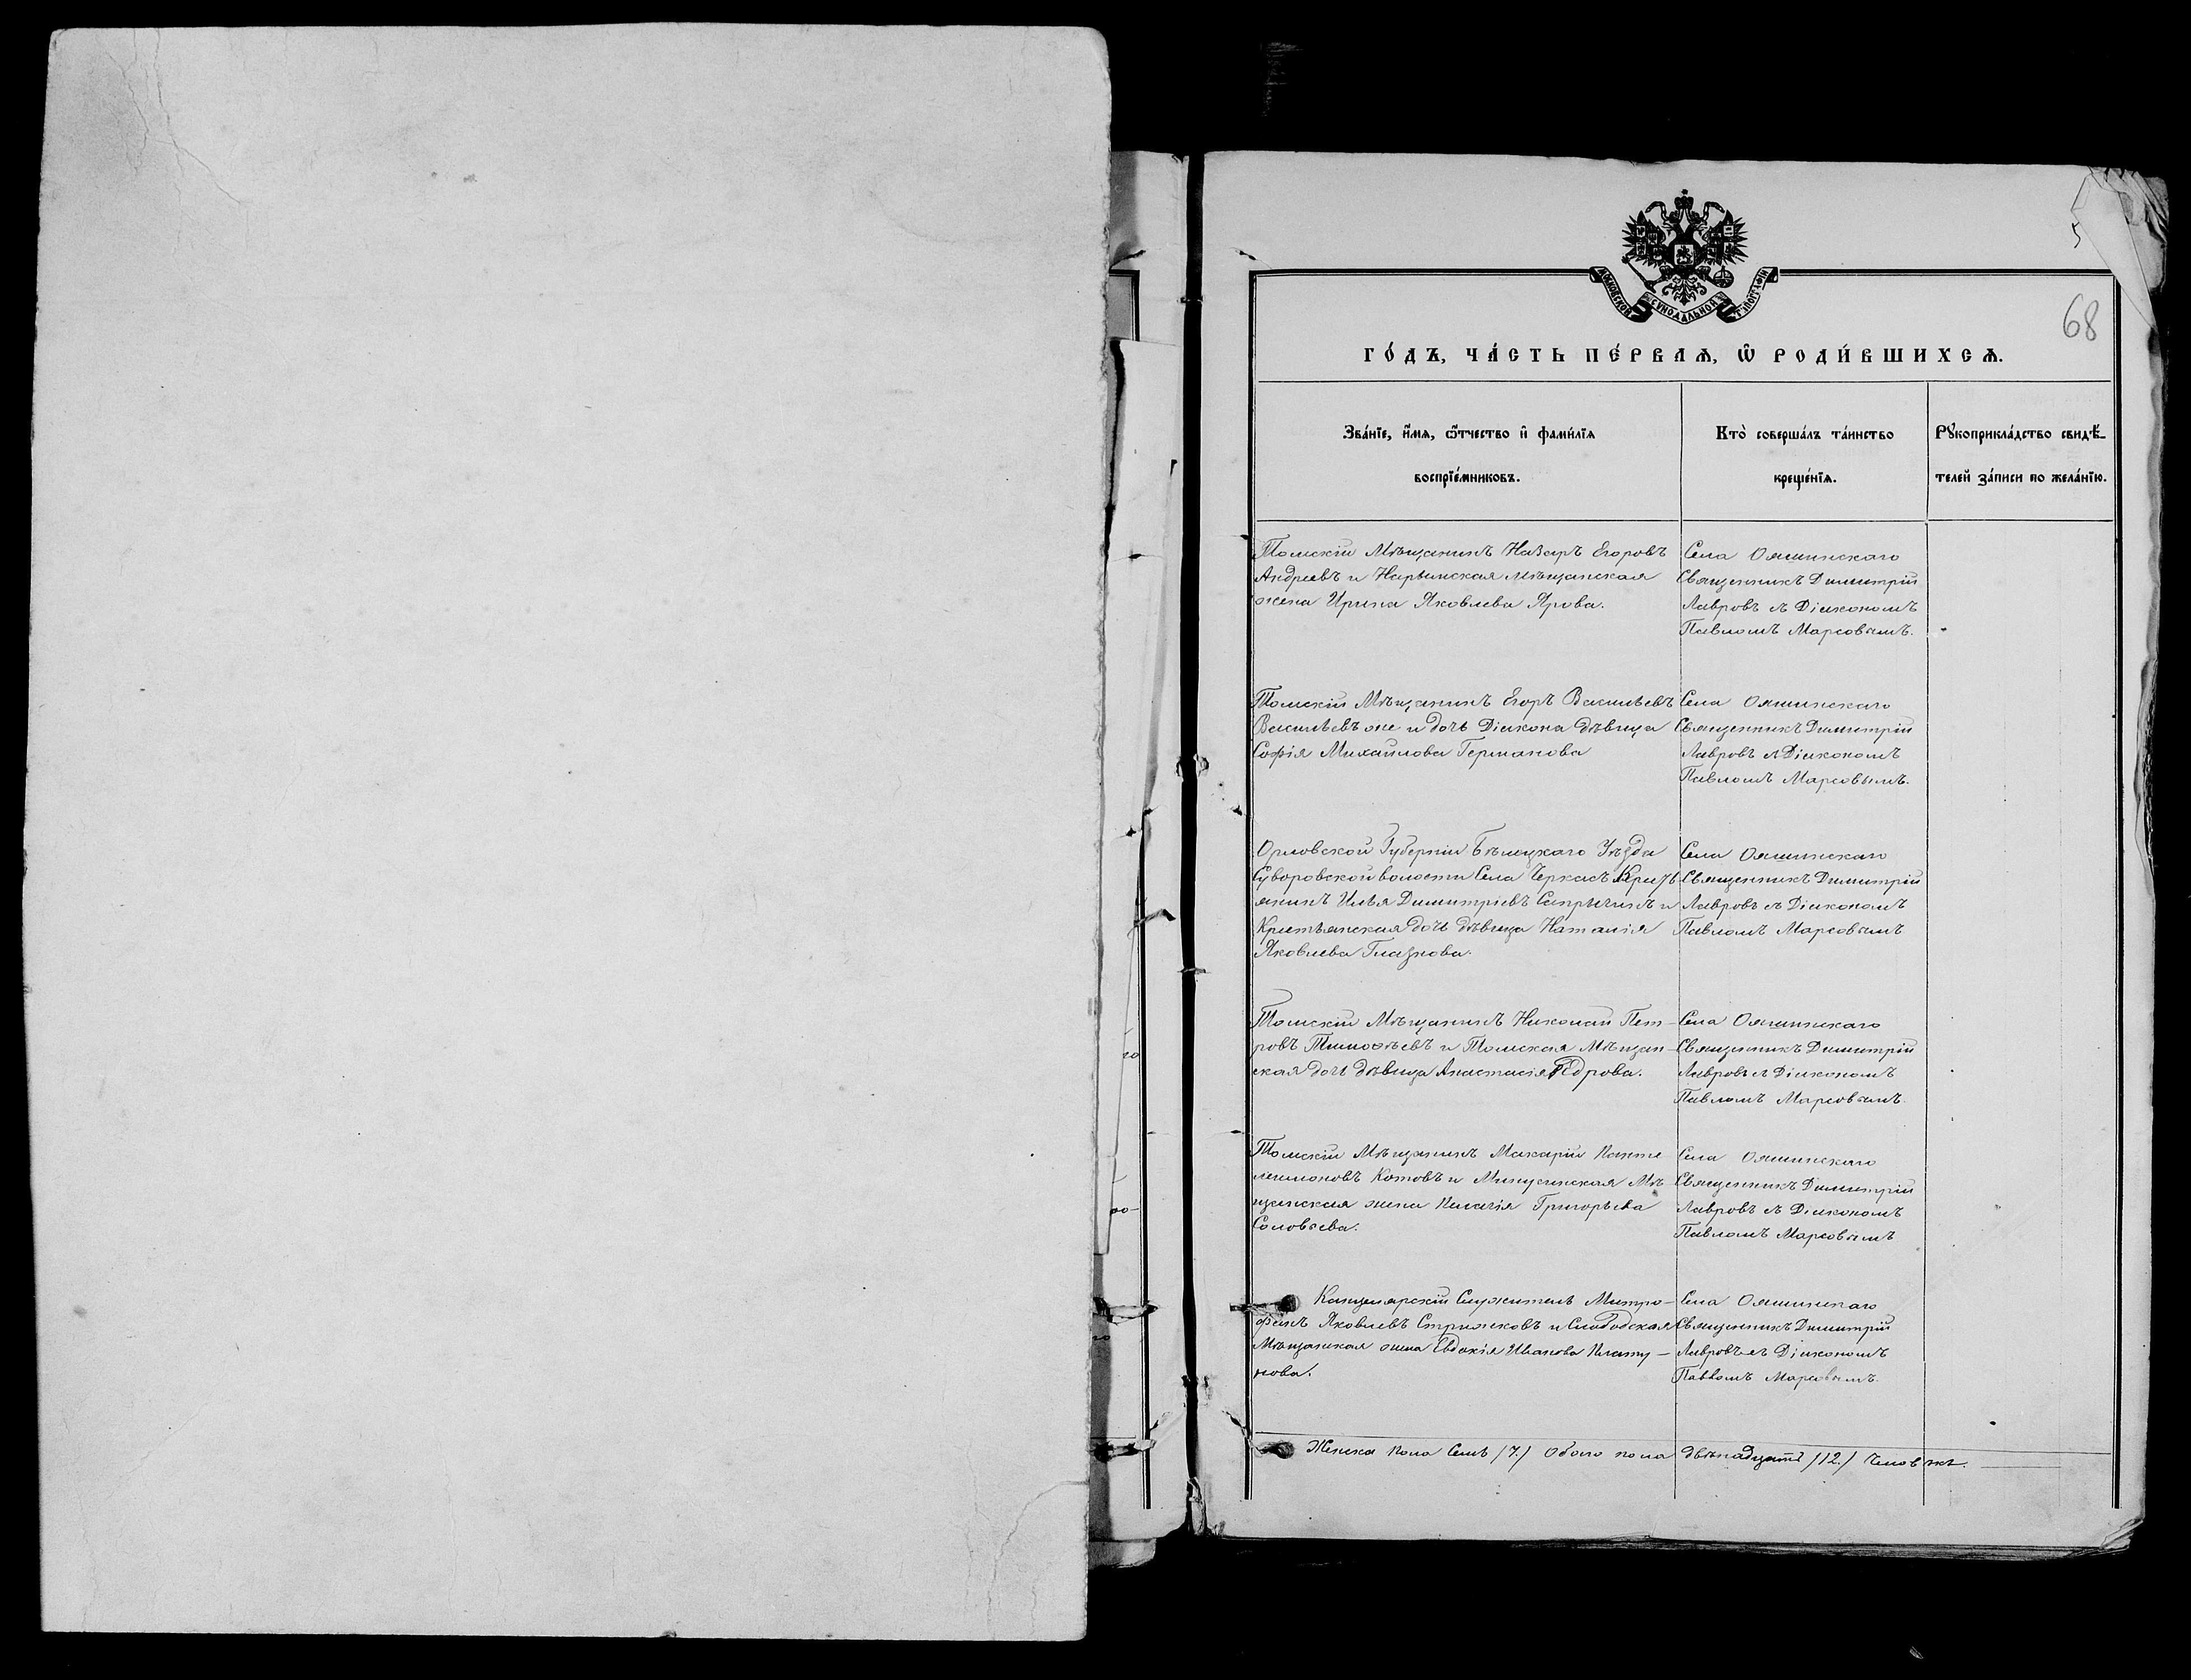 МОСКОВСКОЙ СѴНОДАЛЬНОЙ ТѴПОГРАФІИ
68
ГО́ДЪ, ЧА́СТЬ ПЕ́РВАѦ, Ѿ РОДИ́ВШИХСѦ.
Зва́нїе, и҆́мѧ, ѻ҆́тчество и҆ фами́лїѧ
воспрїе́мниковъ.
Кто̀ соверша́лъ та́инство
креще́нїѧ.
Рꙋкоприкла́дство свидѣ́-
телей за́писи по жела́нїю.
Томскій Мѣщанинъ Назаръ Егоровъ
Андреевъ и Нарымская мѣщанская
жена Ирина Яковлева Ярова.
Села Ояшинскаго
Священникъ Димитрій
Лавровъ съ Діакономъ
Павломъ Марсовымъ.
Томскій Мѣщанинъ Егоръ Васильевъ
Васильевъ же и дочь Діакона дѣвица
Софія Михайлова Германова
Села Ояшинскаго
Священникъ Димитрій
Лавровъ съ Діакономъ
Павломъ Марсовымъ.
Орловской Губерніи Уѣзда
Суворовской волости Села Черкасъ Кресть
янинъ Илья Димитріевъ и
Крестьянская дочь дѣвица Наталія
Яковлева Глазкова.
Села Ояшинскаго
Священникъ Димитрій
Лавровъ съ Діакономъ
Павломъ Марсовымъ
Томскій Мѣщанинъ Николай Пет-
ровъ Тимоѳѣевъ и Томская Мѣщан-
ская дочь дѣвица Анастасія
Села Ояшинскаго
Священникъ Димитрій
Лавровъ съ Діакономъ
Павломъ Марсовымъ.
Томскій Мѣщанинъ Макарій Панте
леимоновъ Котовъ и Минусинская Мѣ
щанская жена Пелагія Григорьева
Соловьева.
Села Ояшинскаго
Священникъ Димитрій
Лавровъ съ Діакономъ
Павломъ Марсовымъ
Канцелярскій Служитель Митро-
фанъ Яковлевъ Стрижковъ и Слободская
Мѣщанская жена Евдокія Иванова Плату-
нова.
Села Ояшинскаго
Священникъ Димитрій
Лавровъ съ Діакономъ
Павломъ Марсовымъ.
Женска пола Семь /7./ Обоего пола двѣнадцать /12./ Человѣкъ.